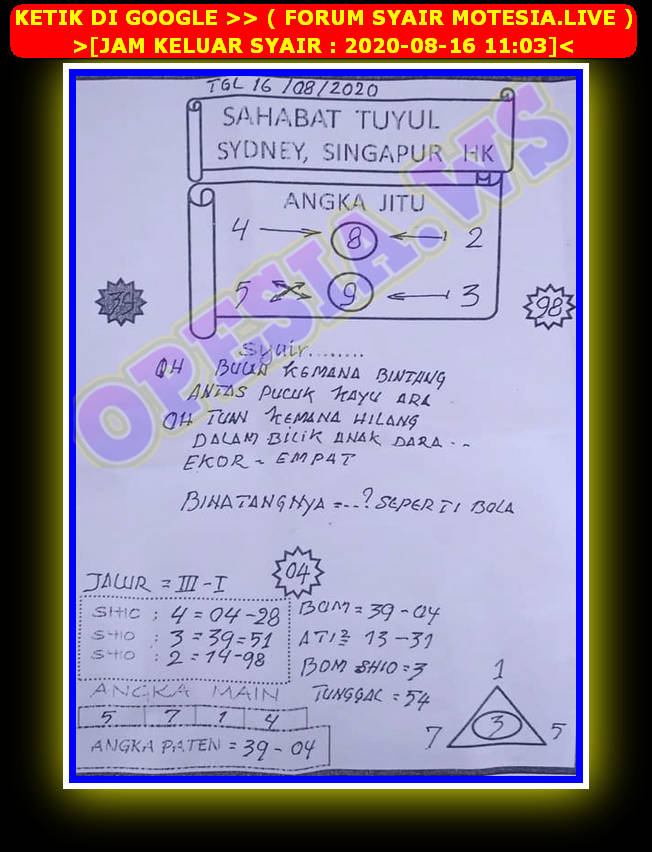 KETIK DI GOOGLE >> ( FORUM SYAIR MOTESIA.LIVE )
>[JAM KELUAR SYAIR : 2020-08-16 11:03]<
TGL 16/08/2020
SAHABAT TUYUL
SYDNEY, SINGAPUR HK
ANGKA JITU
4 8 2
5 9 3
39
98
OPESIA.WS
Syair........
OH BULAN KEMANA BINTANG
ANTAS PUCUK KAYU ARA
OH TUAN KEMANA HILANG
DALAM BILIK ANAK DARA..
EKOR - EMPAT
BINATANGNYA =..? SEPERTI BOLA
04
JALUR = III - I
SHIO : 4 = 04 - 28
SHIO : 3 = 39 = 51
SHIO : 2 = 14 - 98
BOM = 39 - 04
13 - 31
BOM SHIO = 3
TUNGGAL = 54
ANGKA MAIN
5 7 1 4
ANGKA PATEN = 39 - 04
1
7 3 5